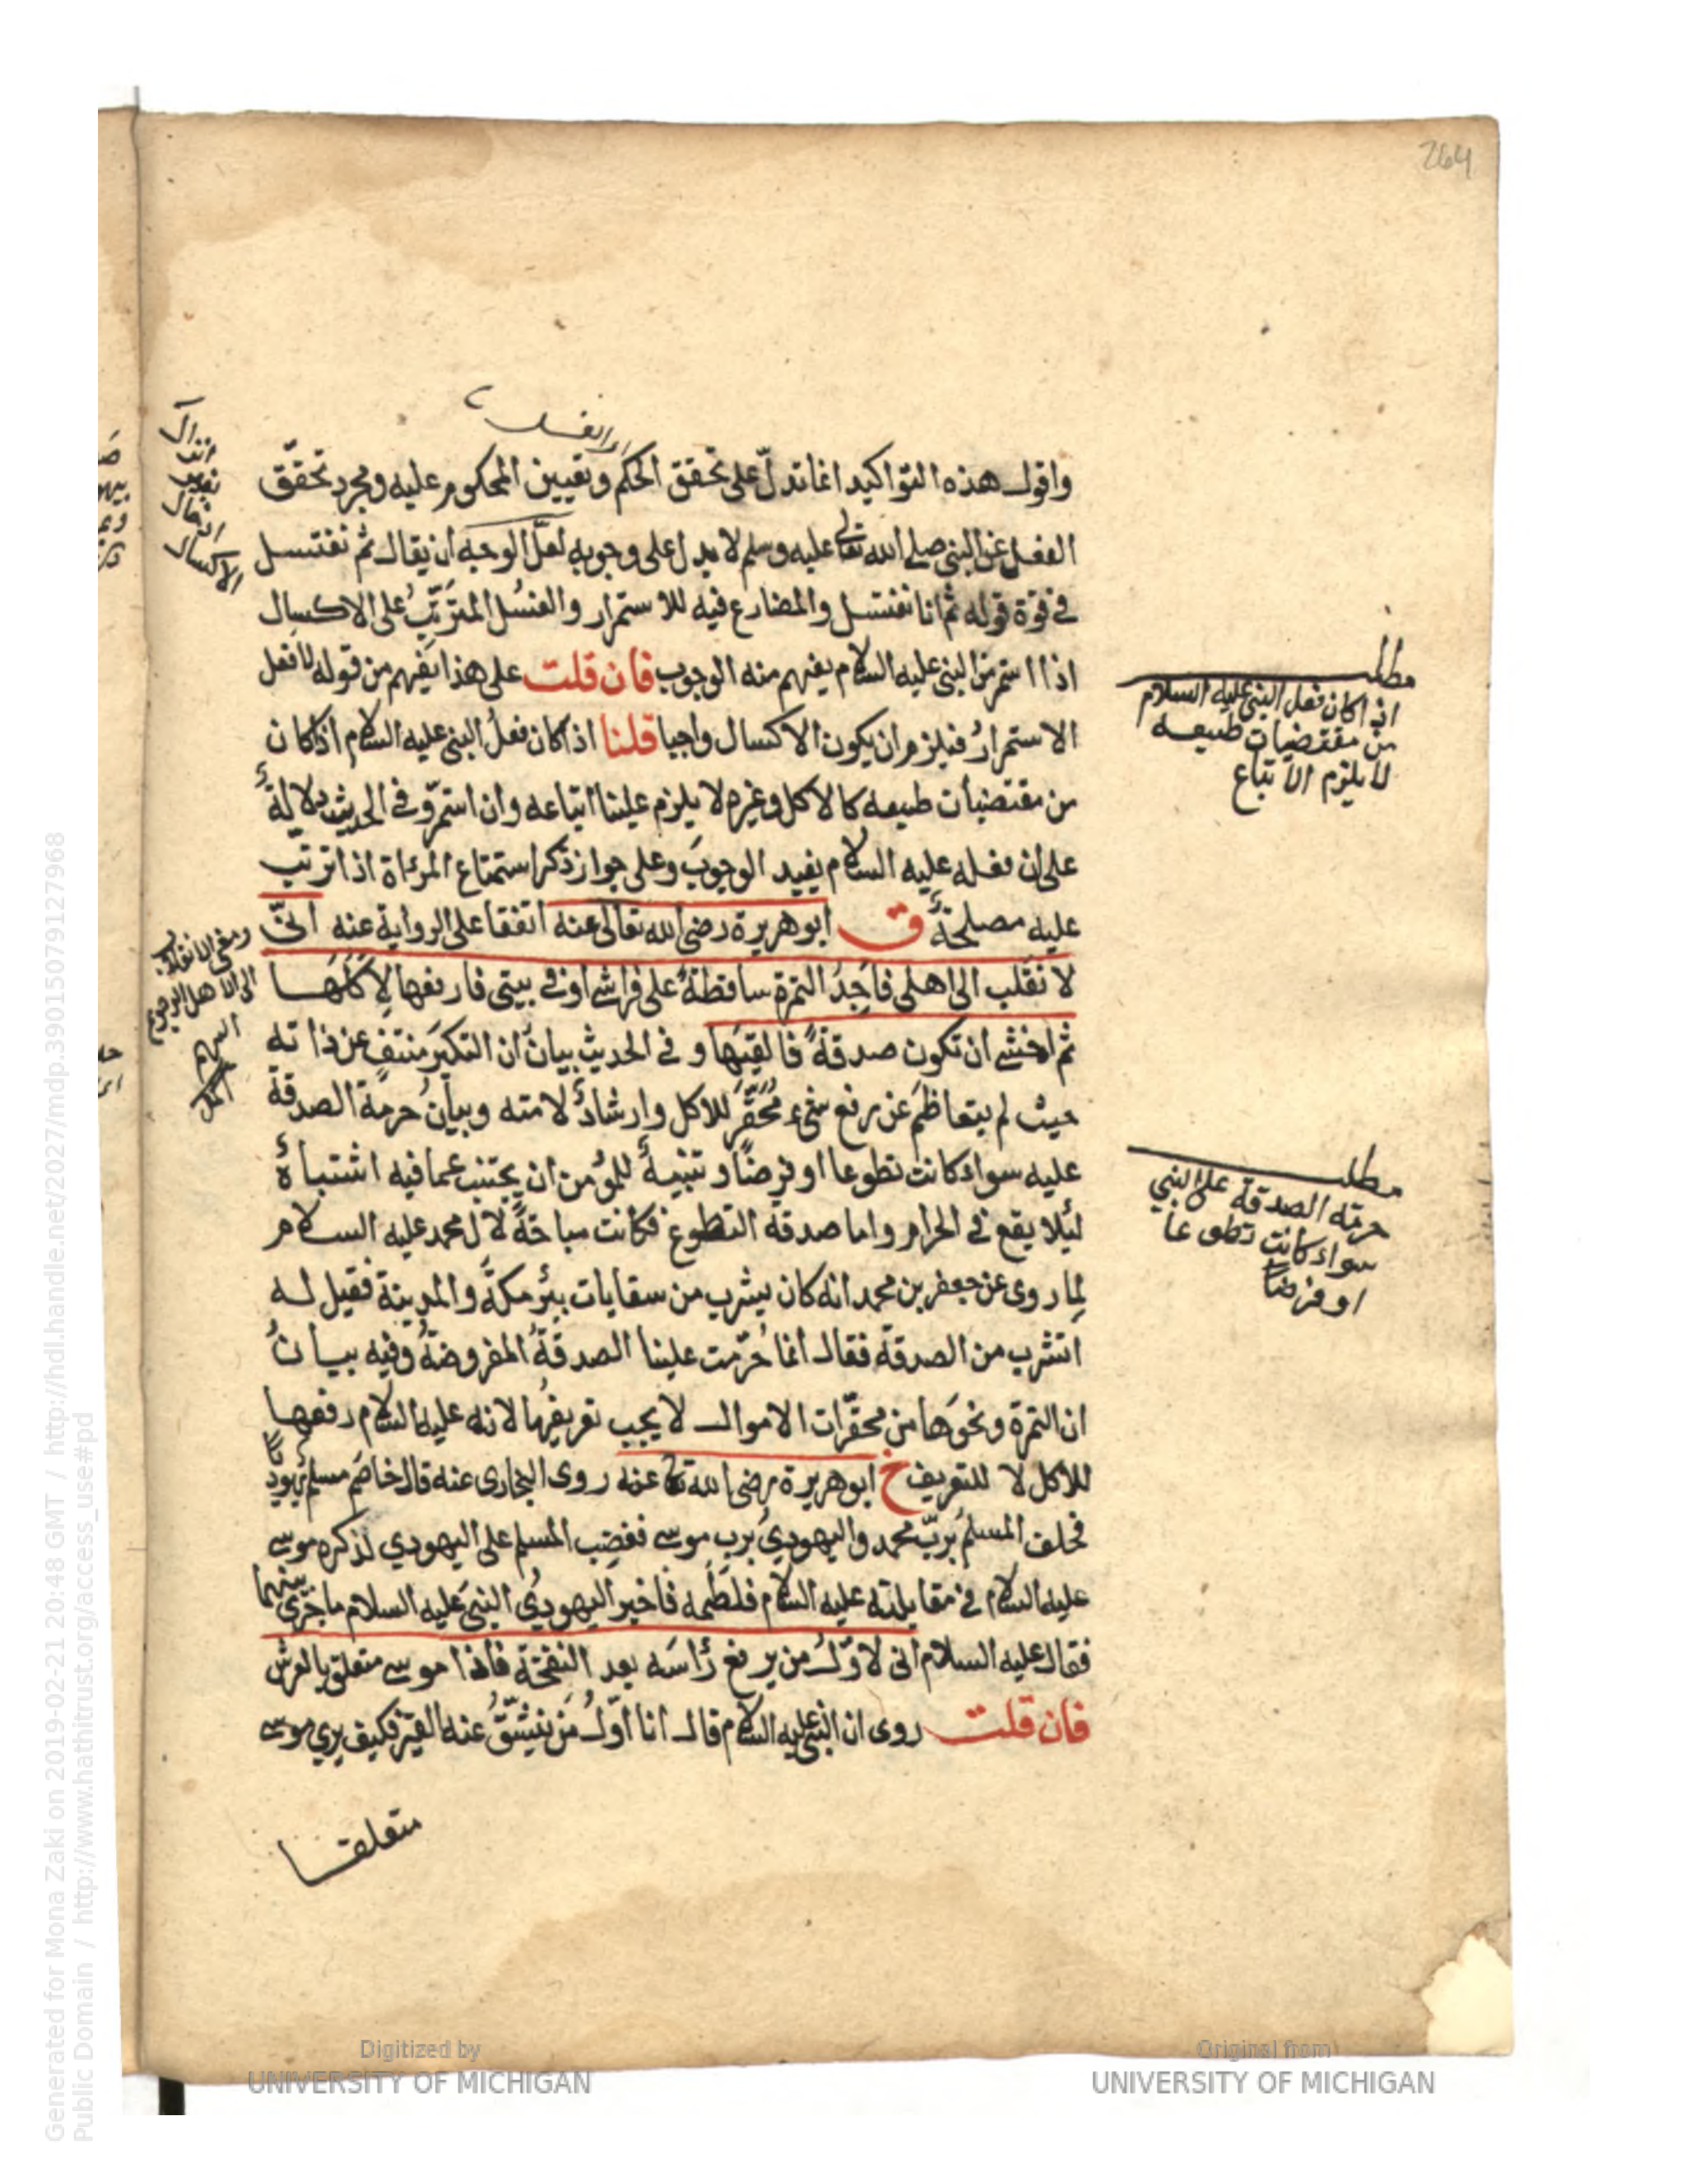 264
واقول هذه التواكيد انما تدلّ على تحقق الحكم وتعيين المحكوم عليه ومجرد تحقّق
الفعل عن النبى صلى الله تعالى عليه وسلم لا يدل على وجوبه لعلّ الوجه ان يقال ثم نغتسل
فى قوة قوله ثم انا نغتسل والمضارع فيه للاستمرار والغسُل المترتّبُ على الاكسال
اذا استمر من النبى عليه السلام يفهم منه الوجوب فان قلت على هذا يَفهم من قوله لافعل
الاستمرارُ فيلزم ان يكون الاكسال واجبا قلنا اذا كان فعلُ النبى عليه السلام اذا كان
من مقتضيات طبيعه كالاكل وغيره لا يلزم علينا اتباعه وان استمرّ وفى الحديث دلالةٌ
على ان فعله عليه السلام يفيد الوجوبَ وعلى جواز ذكر استمتاع المرءاة اذا ترتّب
عليه مصلحةٌ ق ابو هريرة رضى الله تعالى عنه اتفقا على الرواية عنه انّى
لانقلب الى اهلى فاجدُ التمرة ساقطةً على فراشى او فى بيتى فارفعها لاكلها
ثم اخشى ان تكون صدقةً فالقيها وفى الحديث بيانُ ان التكبّر منتفٍ عن ذاته
حيث لم يتعاظم عن رفع شىء مُحَقَّرٍ للاكل وارشادٌ لامته وبيانُ حرمة الصدقة
عليه سواء كانت تطوعا او فرضًا وتنبيهٌ للمؤمن ان يجتنب عما فيه اشتباهٌ
لئلا يقع فى الحرام واما صدقة التطوع فكانت مباحةً لآل محمد عليه السلام
لِما روى عن جعفر بن محمد انه كان يشرب من سقايات بئر مكةَ والمدينة فقيل له
اتشرب من الصدقة فقال انما حُرّمت علينا الصدقةُ المفروضةُ وفيه بيانُ
ان التمرة ونحوَها من محقّرات الاموال لا يجب تعريفُها لانه عليه السلام رفعها
للاكل لا للتعريف خ ابو هريرة رضى الله تعالى عنه روى البخارى عنه قال خاصَم مسلم يهوديّا
فحلف المسلمُ بربّ محمد واليهودىُّ برب موسى فغضب المسلم على اليهودي لذكره موسى
عليه السلام فى مقابلته عليه السلام فلطمه فاخبر اليهوديُ النبىَ عليه السلام ما جرى بينهما
فقال عليه السلام انى لاوّلُ من يرفع رأسَه بعد النفخة فاذا موسى متعلق بالعرش
فان قلت روى ان النبى عليه السلام قال انا اوّلُ من ينشقّ عنه القبر فكيف يرى موسى
متعلقا
مطلب
اذا كان فعل النبى عليه السلام
من مقتضيات طبيعه
لا يلزم الاتباع
مطلب
حرمة الصدقة على النبي
سواء كانت تطوعا
او فرضا
Digitized by
UNIVERSITY OF MICHIGAN
Original from
UNIVERSITY OF MICHIGAN
Generated for Mona Zaki on 2019-02-21 20:48 GMT / http://hdl.handle.net/2027/mdp.39015079127968
Public Domain / http://www.hathitrust.org/access_use#pd